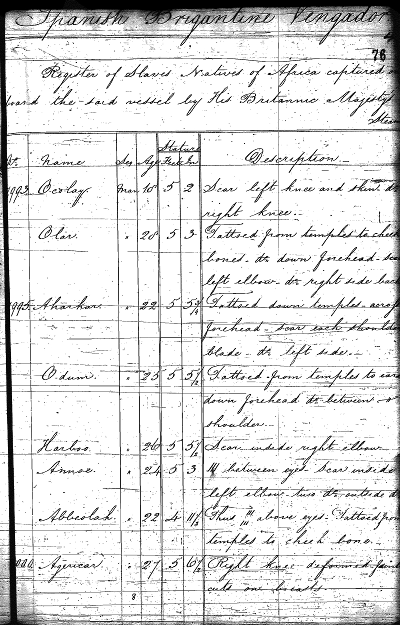 Spanish Brigantine Vengador
76
Register of Slaves Natives of Africa captured
board the said vessel by His Britannic Majesty's
Stature
No. Name Sex Age Feet In Description
Man 18 5 2 Scar left knee and shin do
right knee
Olar " 28 5 3 Tattoed from temples to cheek
bones do down forehead scar
left elbow do right side back
995 " 22 5 5 3/4 Tattoed down temples across
forehead scar each shoulder
blade do left side
Odum " 25 5 5 1/2 Tattoed from temples to ears
down forehead do between
shoulder
" 26 5 5 1/2 Scar inside right elbow
Annae " 24 5 3 between eyes scar inside
left elbow two do outside
" 22 4 11 1/2 Thus above eyes Tattoed from
temples to cheek bone
" 27 5 6 1/2 Right knee deformed
cuts on breasts
8